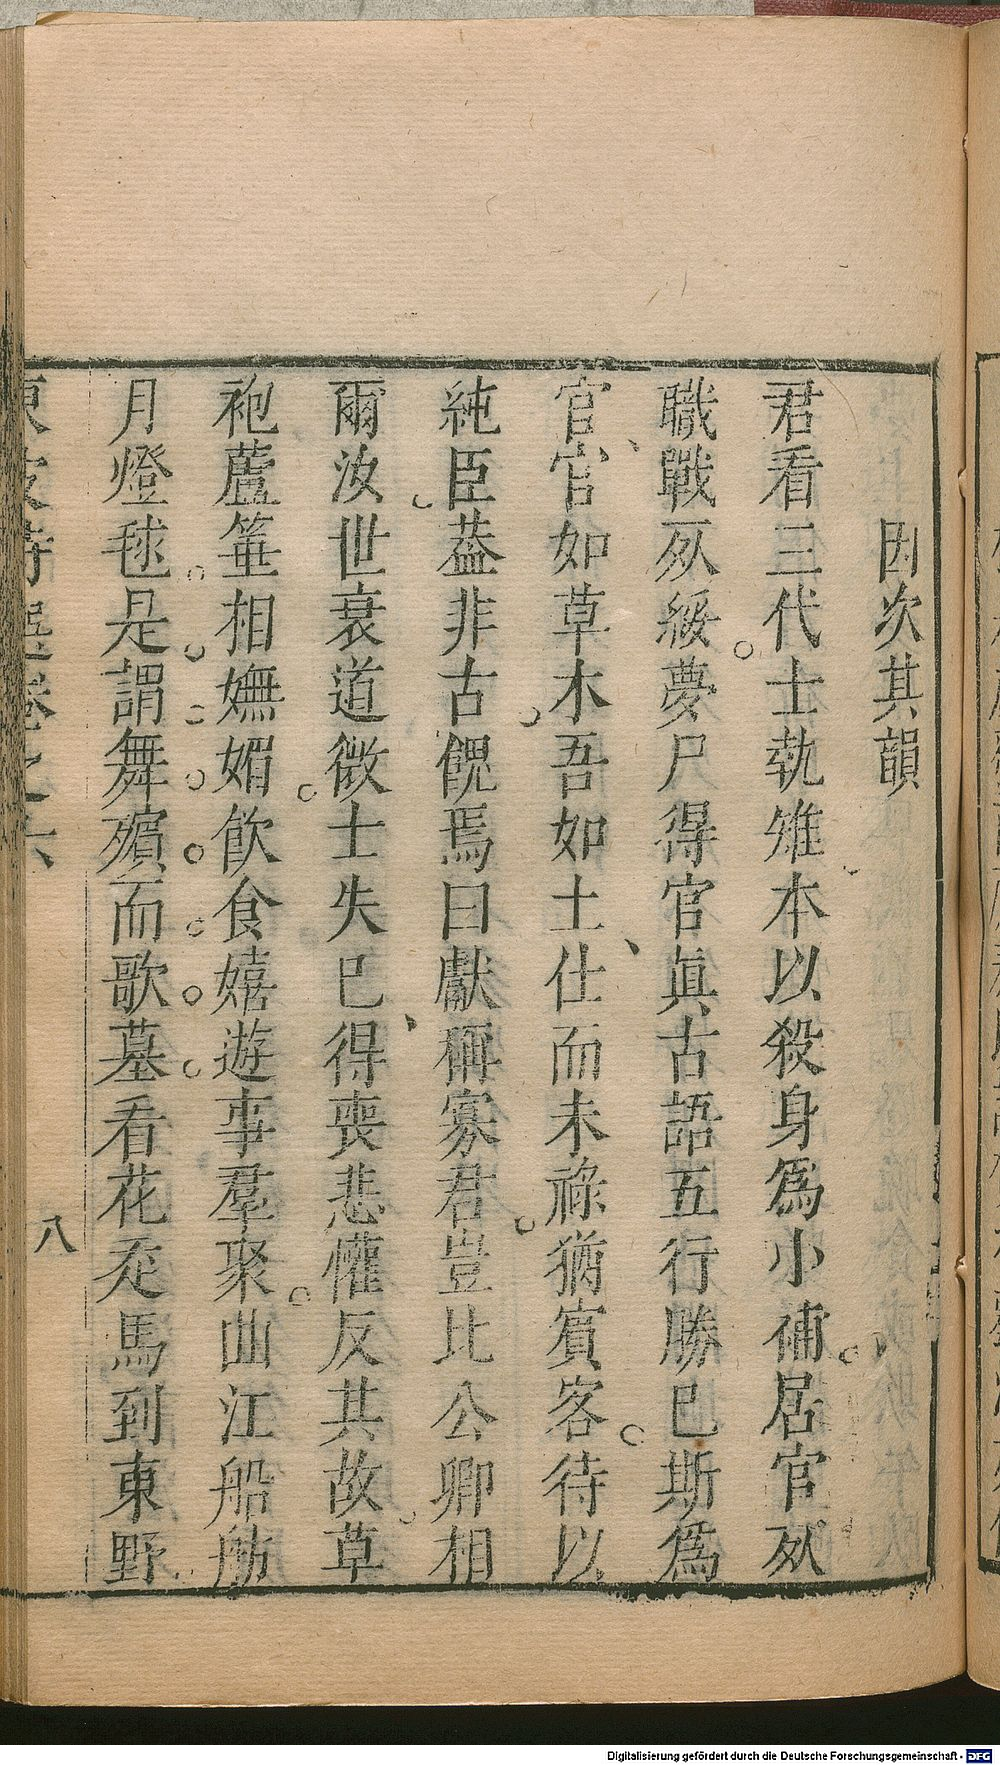 因次其韻
君看三代士執雉本以殺身爲小補居官死
職戰死綏夢尸得官眞古語五行勝已斯爲
官官如草木吾如土仕而未祿猶賓客待以
純臣葢非古餽焉曰獻稱寡君豈比公卿相
爾汝世衰道微士失已得喪悲懽反其故草
袍蘆箠相嫵媚飮食嬉遊事羣聚曲江船舫
月燈毬是謂舞殯而歌墓看花走馬到東野
東坡詩選卷之六
八
Digitalisierung gefördert durch die Deutsche Forschungsgemeinschaft - DFG